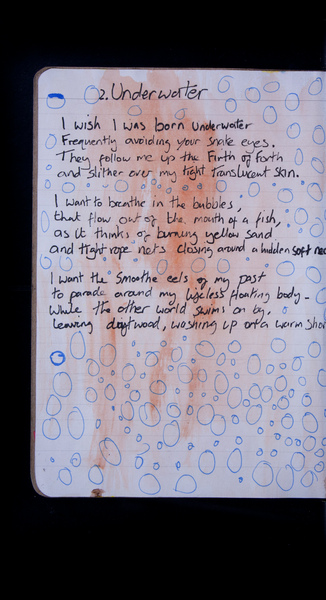 2. Underwater
I wish I was born underwater
Frequently avoiding your snake eyes.
They follow me up the Firth of Forth
and slither over my tight translucent skin.
I want to breathe in the bubbles,
that flow out of the mouth of a fish,
as it thinks of burning yellow sand
and tight rope nets closing around a hidden soft
I want the smoothe eels of my past
to parade around my lifeless floating body -
While the other world swims on by,
leaving driftwood, washing up onto a warm